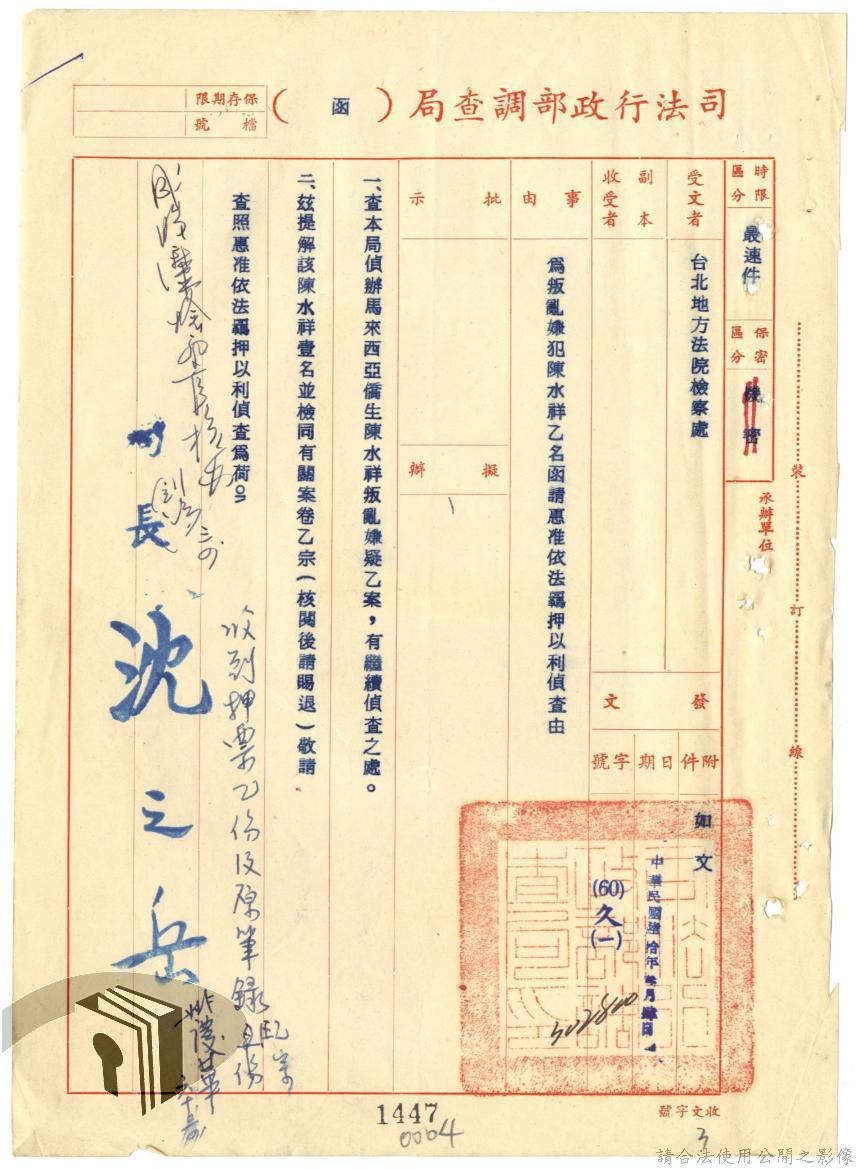 司法行政部調查局（函）
保存期限
檔號
時限區分
最速件
保密區分
密
受文者
台北地方法院檢察處
副本收受者
承辦單位
發文
附件
如文
日期
字號
(60)久(一)
302800
事由
為叛亂嫌犯陳水祥乙名函請惠准依法羈押以利偵查由
批示
擬辦
一、查本局偵辦馬來西亞僑生陳水祥叛亂嫌疑乙案，有繼續偵查之處。
二、茲提解該陳水祥壹名並檢同有關案卷乙宗（核閱後請賜退）敬請
查照惠准依法羈押以利偵查為荷
局長 沈之岳
收到押票乙份及原筆錄
裝
訂
線
收文字號
3
1447
0004
請合法使用公開之影像